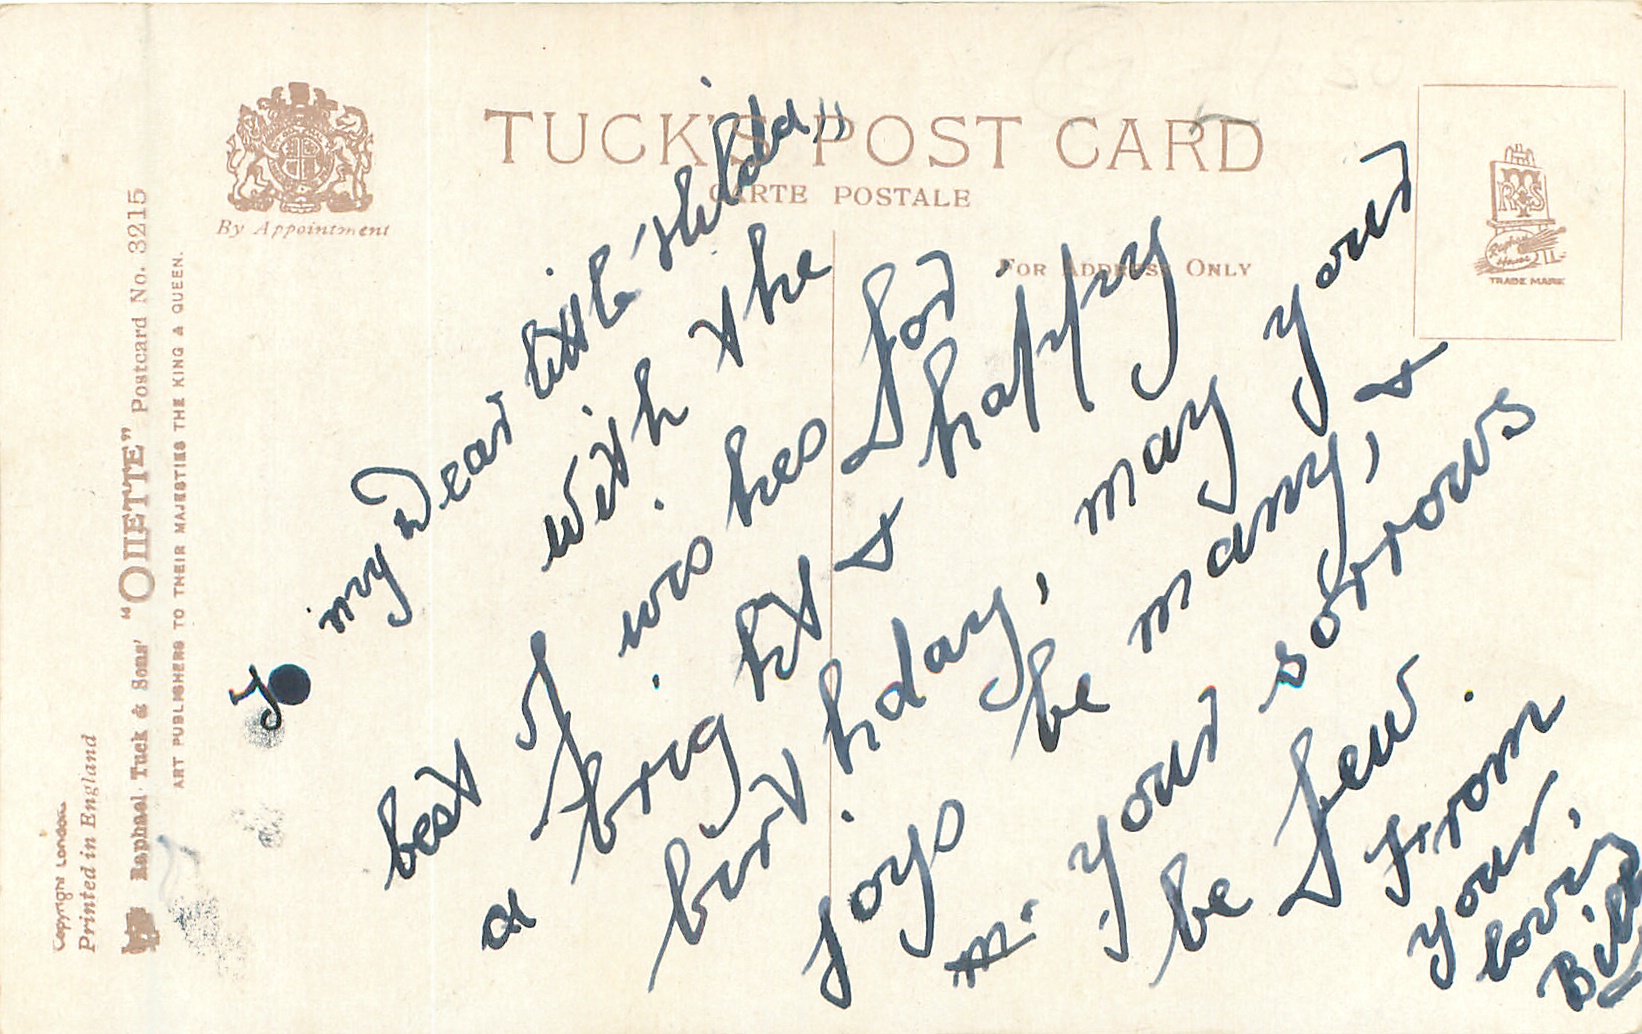 TUCK'S POST CARD
CARTE POSTALE
FOR ADDRESS ONLY
By Appointment
TRADE MARK
Copyright London
Printed in England
Raphael Tuck & Sons' "OILETTE" Postcard No. 3215
ART PUBLISHERS TO THEIR MAJESTIES THE KING & QUEEN.
To
my Dear little
with the
best of wishes for
a bright & happy
birthday, may your
joys be many, &
your sorrows
be few.
From
your